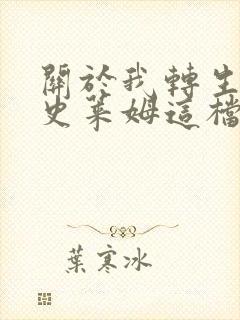 關於我轉生
史萊姆這檔
葉寒冰